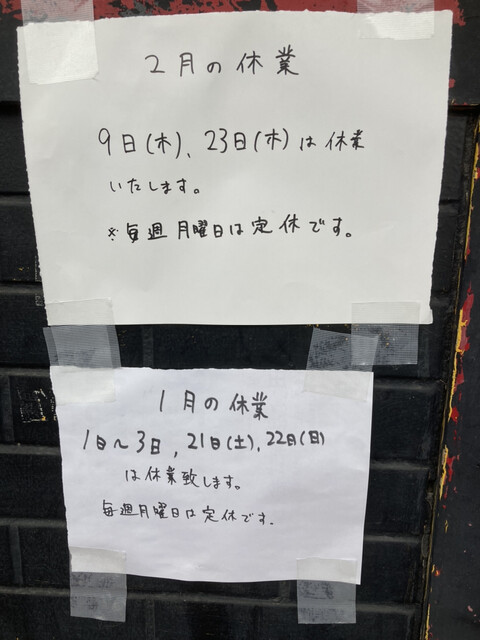 2月の休業
9日(木)、23日(木)は休業
いたします。
※毎週月曜日は定休です。
1月の休業
1日〜3日,21日(土),22日(日)
は休業致します。
毎週月曜日は定休です.